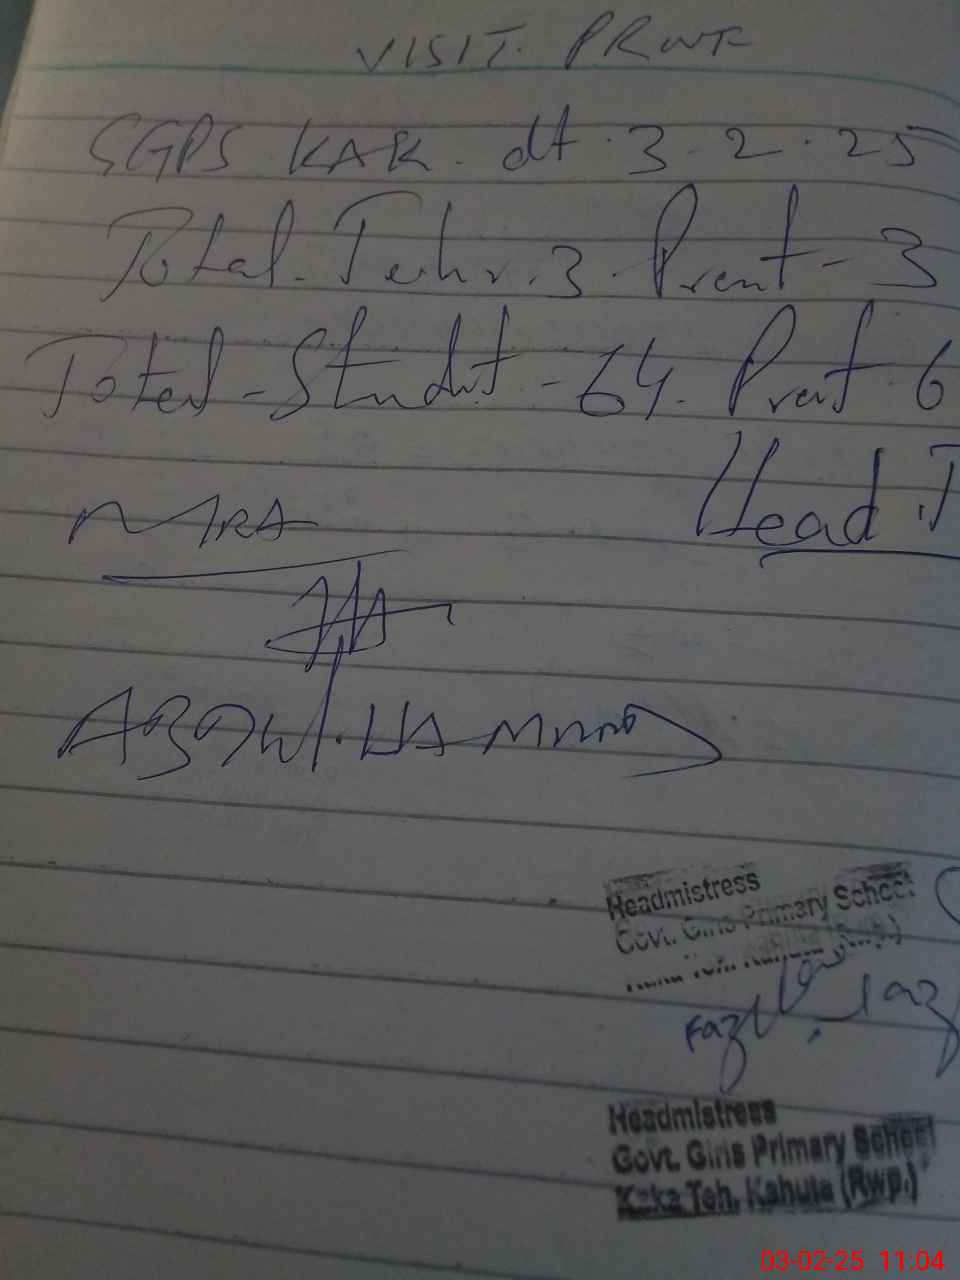 VISIT
GGPS KAK. dt. 3-2.25
Total. Tehr. 3. Prent - 3
Total - Studnt - 64. Prent 6
Head T
MRA
ABDUL. HAMMED
Headmistress
Govt. Girls Primary School
Kahuta (Rwp.)
Headmistress
Govt. Girls Primary School
Kaka Teh. Kahuta (Rwp.)
03-02-25 11:04